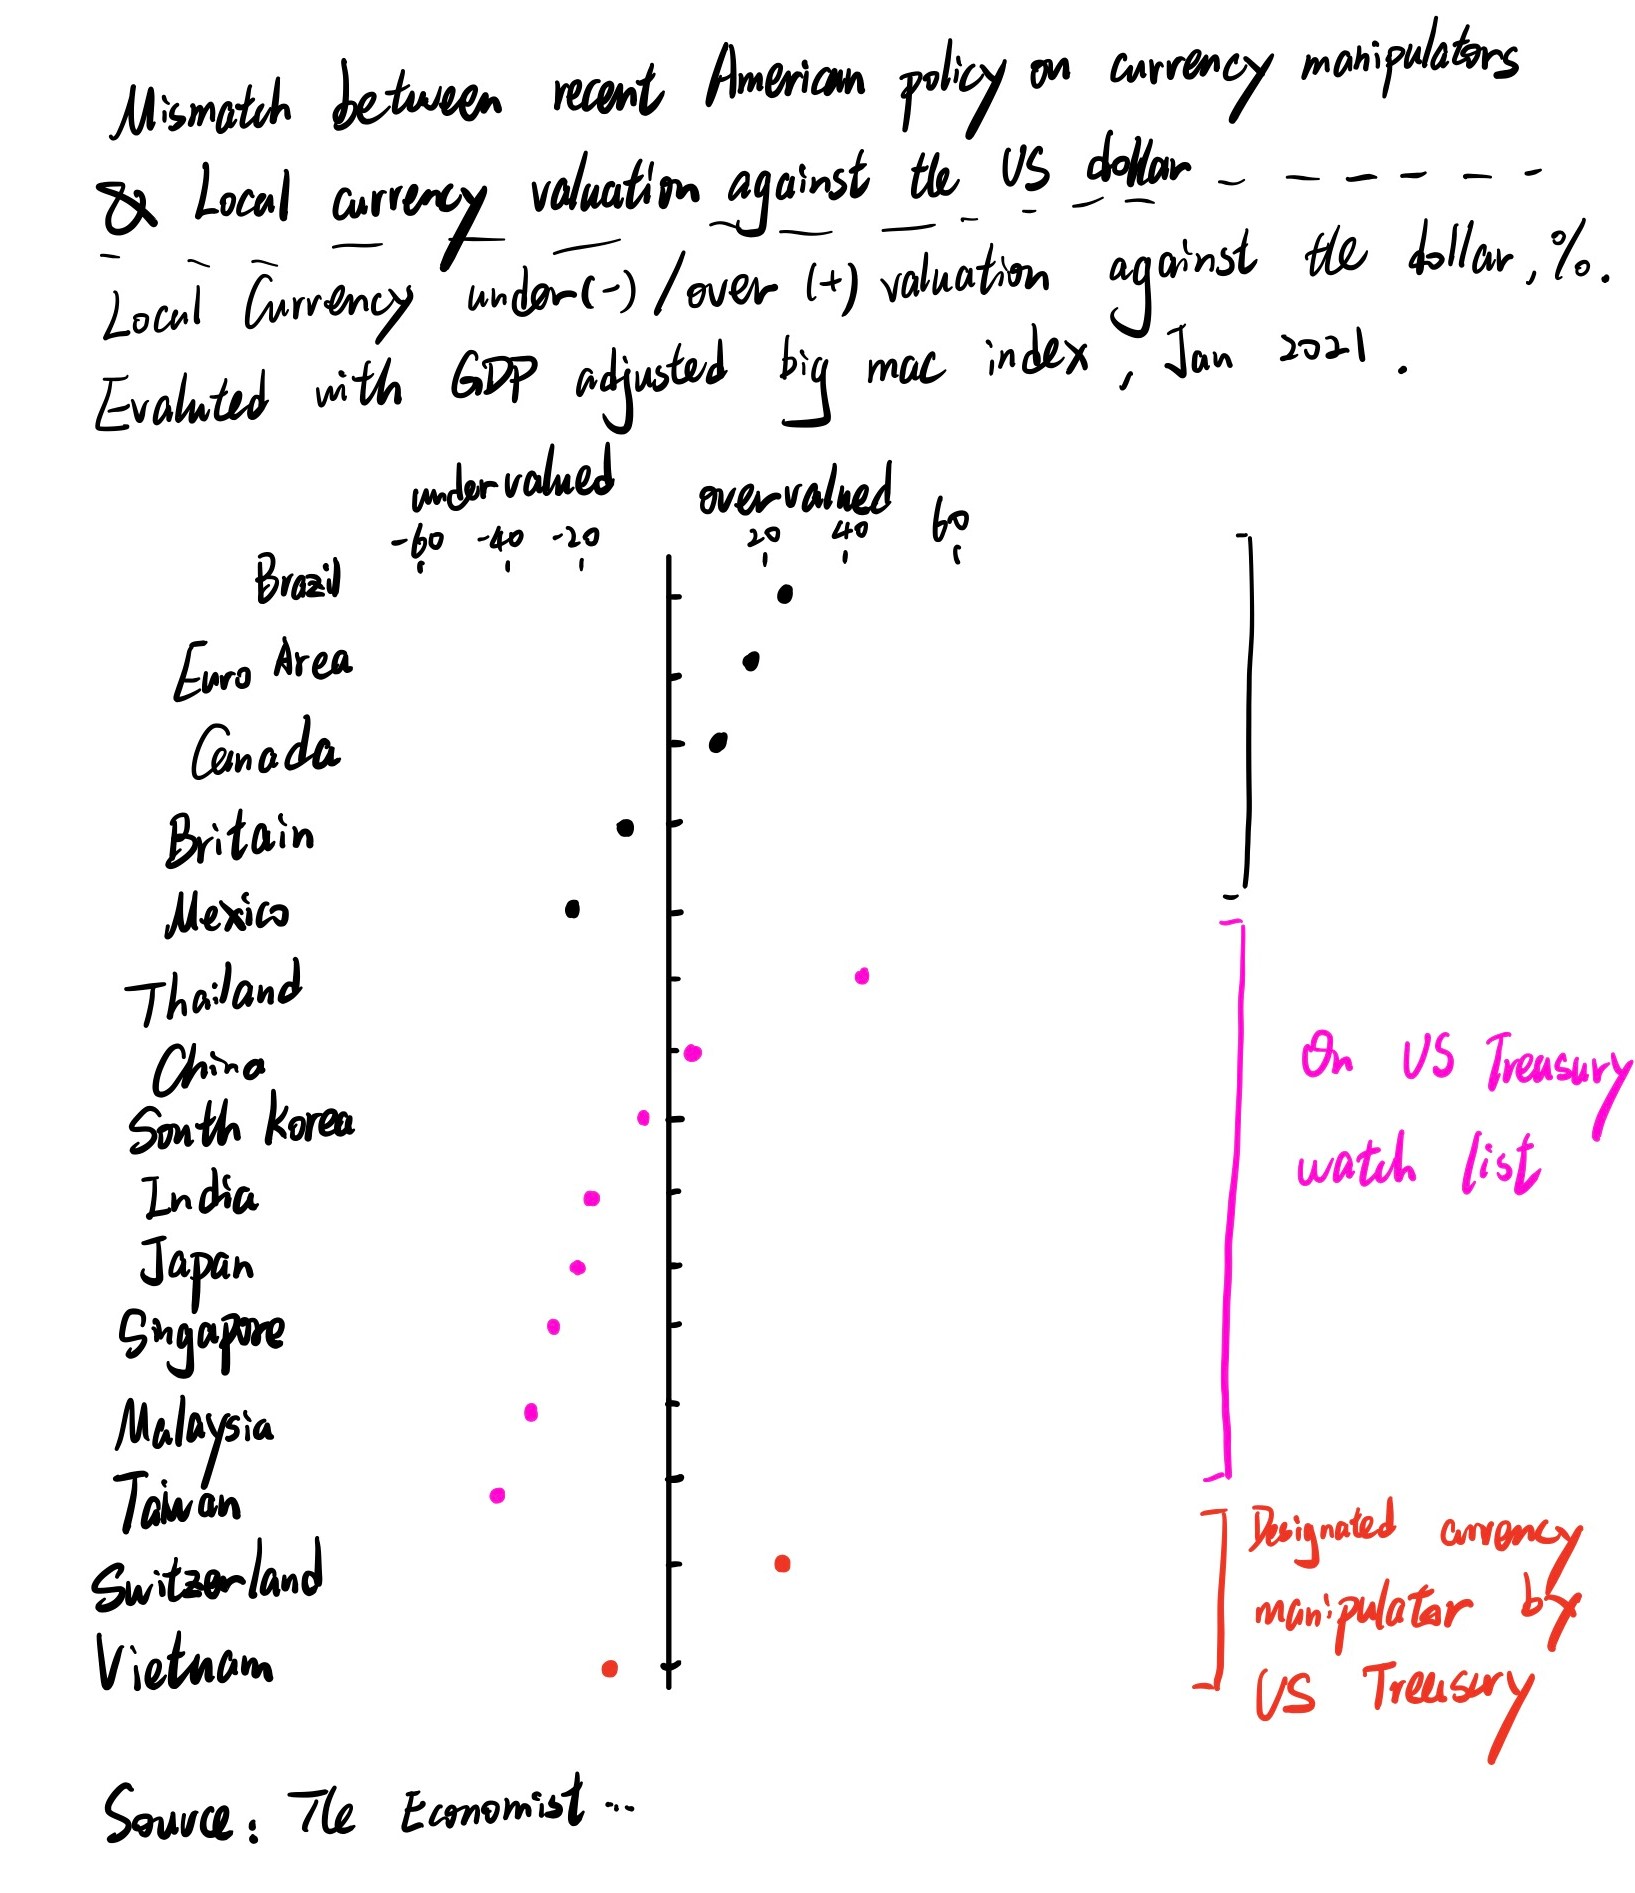 Mismatch between recent American policy on currency manipulators
& Local currency valuation against the US dollar
Local Currency under(-)/over (+) valuation against the dollar, %.
Evaluated with GDP adjusted big mac index, Jan 2021.
undervalued overvalued
-60 -40 -20 20 40 60
Brazil
Euro Area
Canada
Britain
Mexico
Thailand
China
South Korea
India
Japan
Singapore
Malaysia
Taiwan
Switzerland
Vietnam
On US Treasury
watch list
Designated currency
manipulator by
US Treasury
Source: The Economist ...